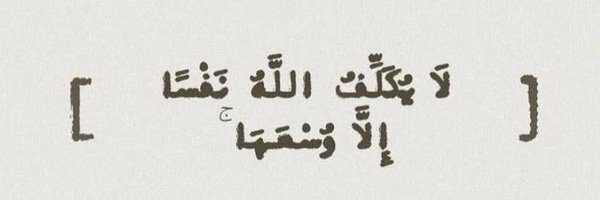 [ لَا يُكَلِّفُ اللَّهُ نَفْسًا
إِلَّا وُسْعَهَا ۚ ]